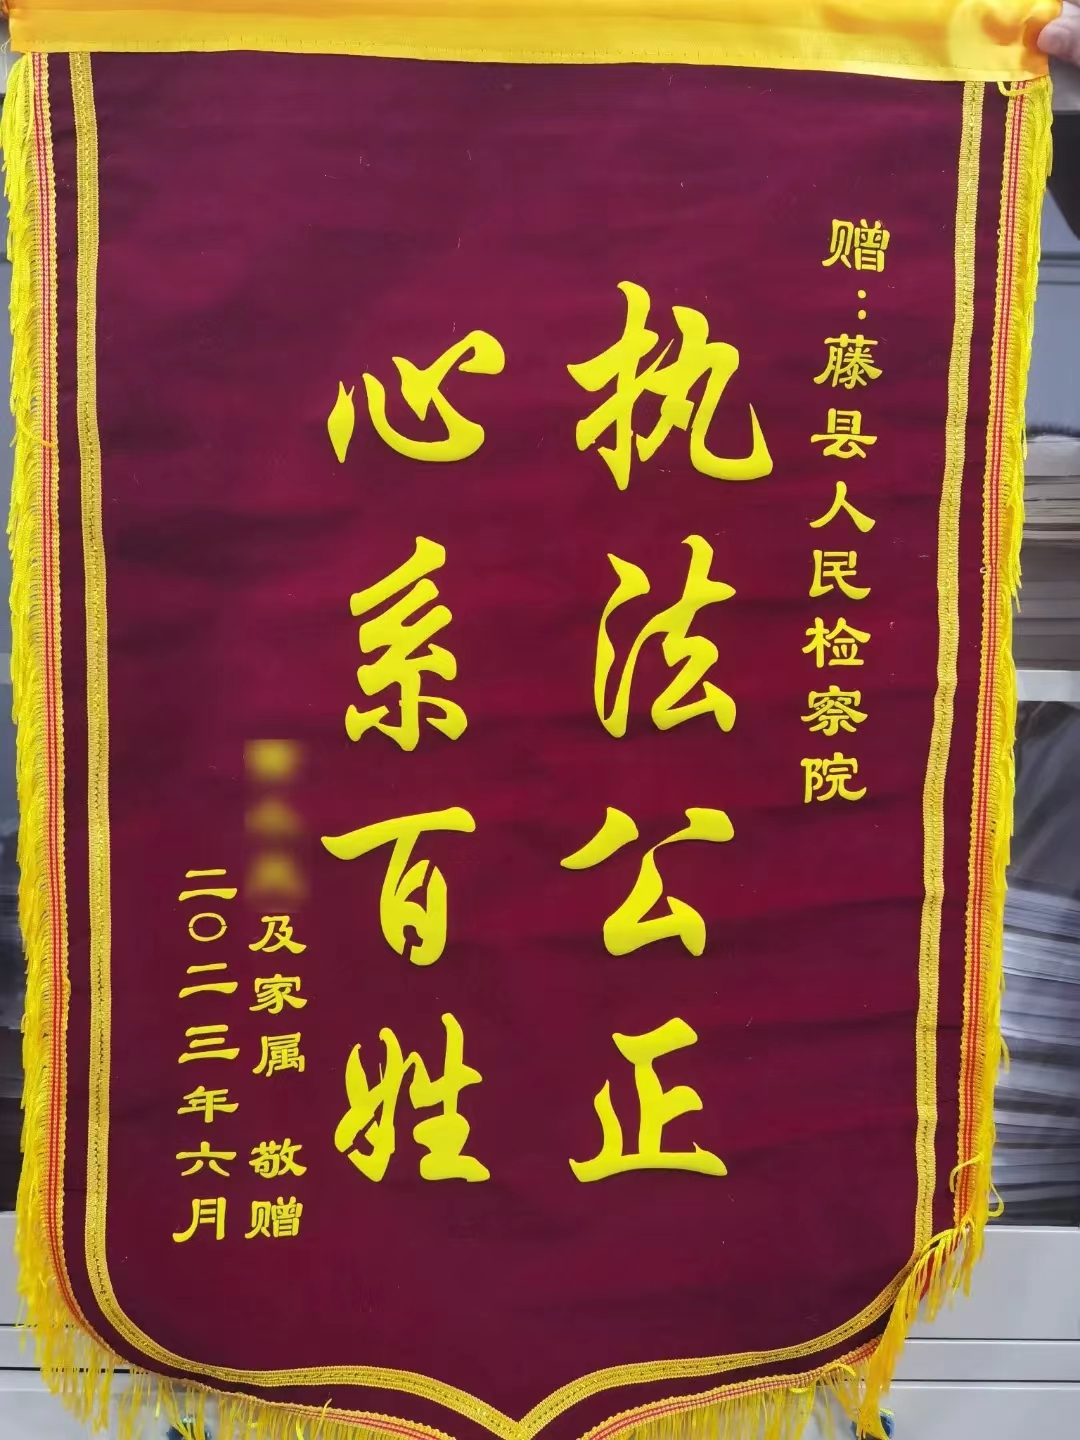 赠：藤县人民检察院
执法公正
心系百姓
及家属 敬赠
二〇二三年六月